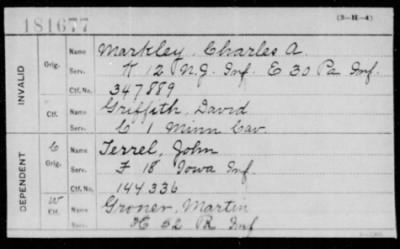 181677
(3-H-4)
INVALID
Orig. Name Markley, Charles A.
Serv. K 12 N.J. Inf. E 30 Pa Inf.
Ctf. No. 347889
Ctf. Name Griffith, David
Serv. C 1 Minn Cav.
DEPENDENT
C Orig. Name Terrel, John
Serv. F 18 Iowa Inf
Ctf. No. 144336
W Ctf. Name Groner, Martin
Serv. H 52 Pa Inf